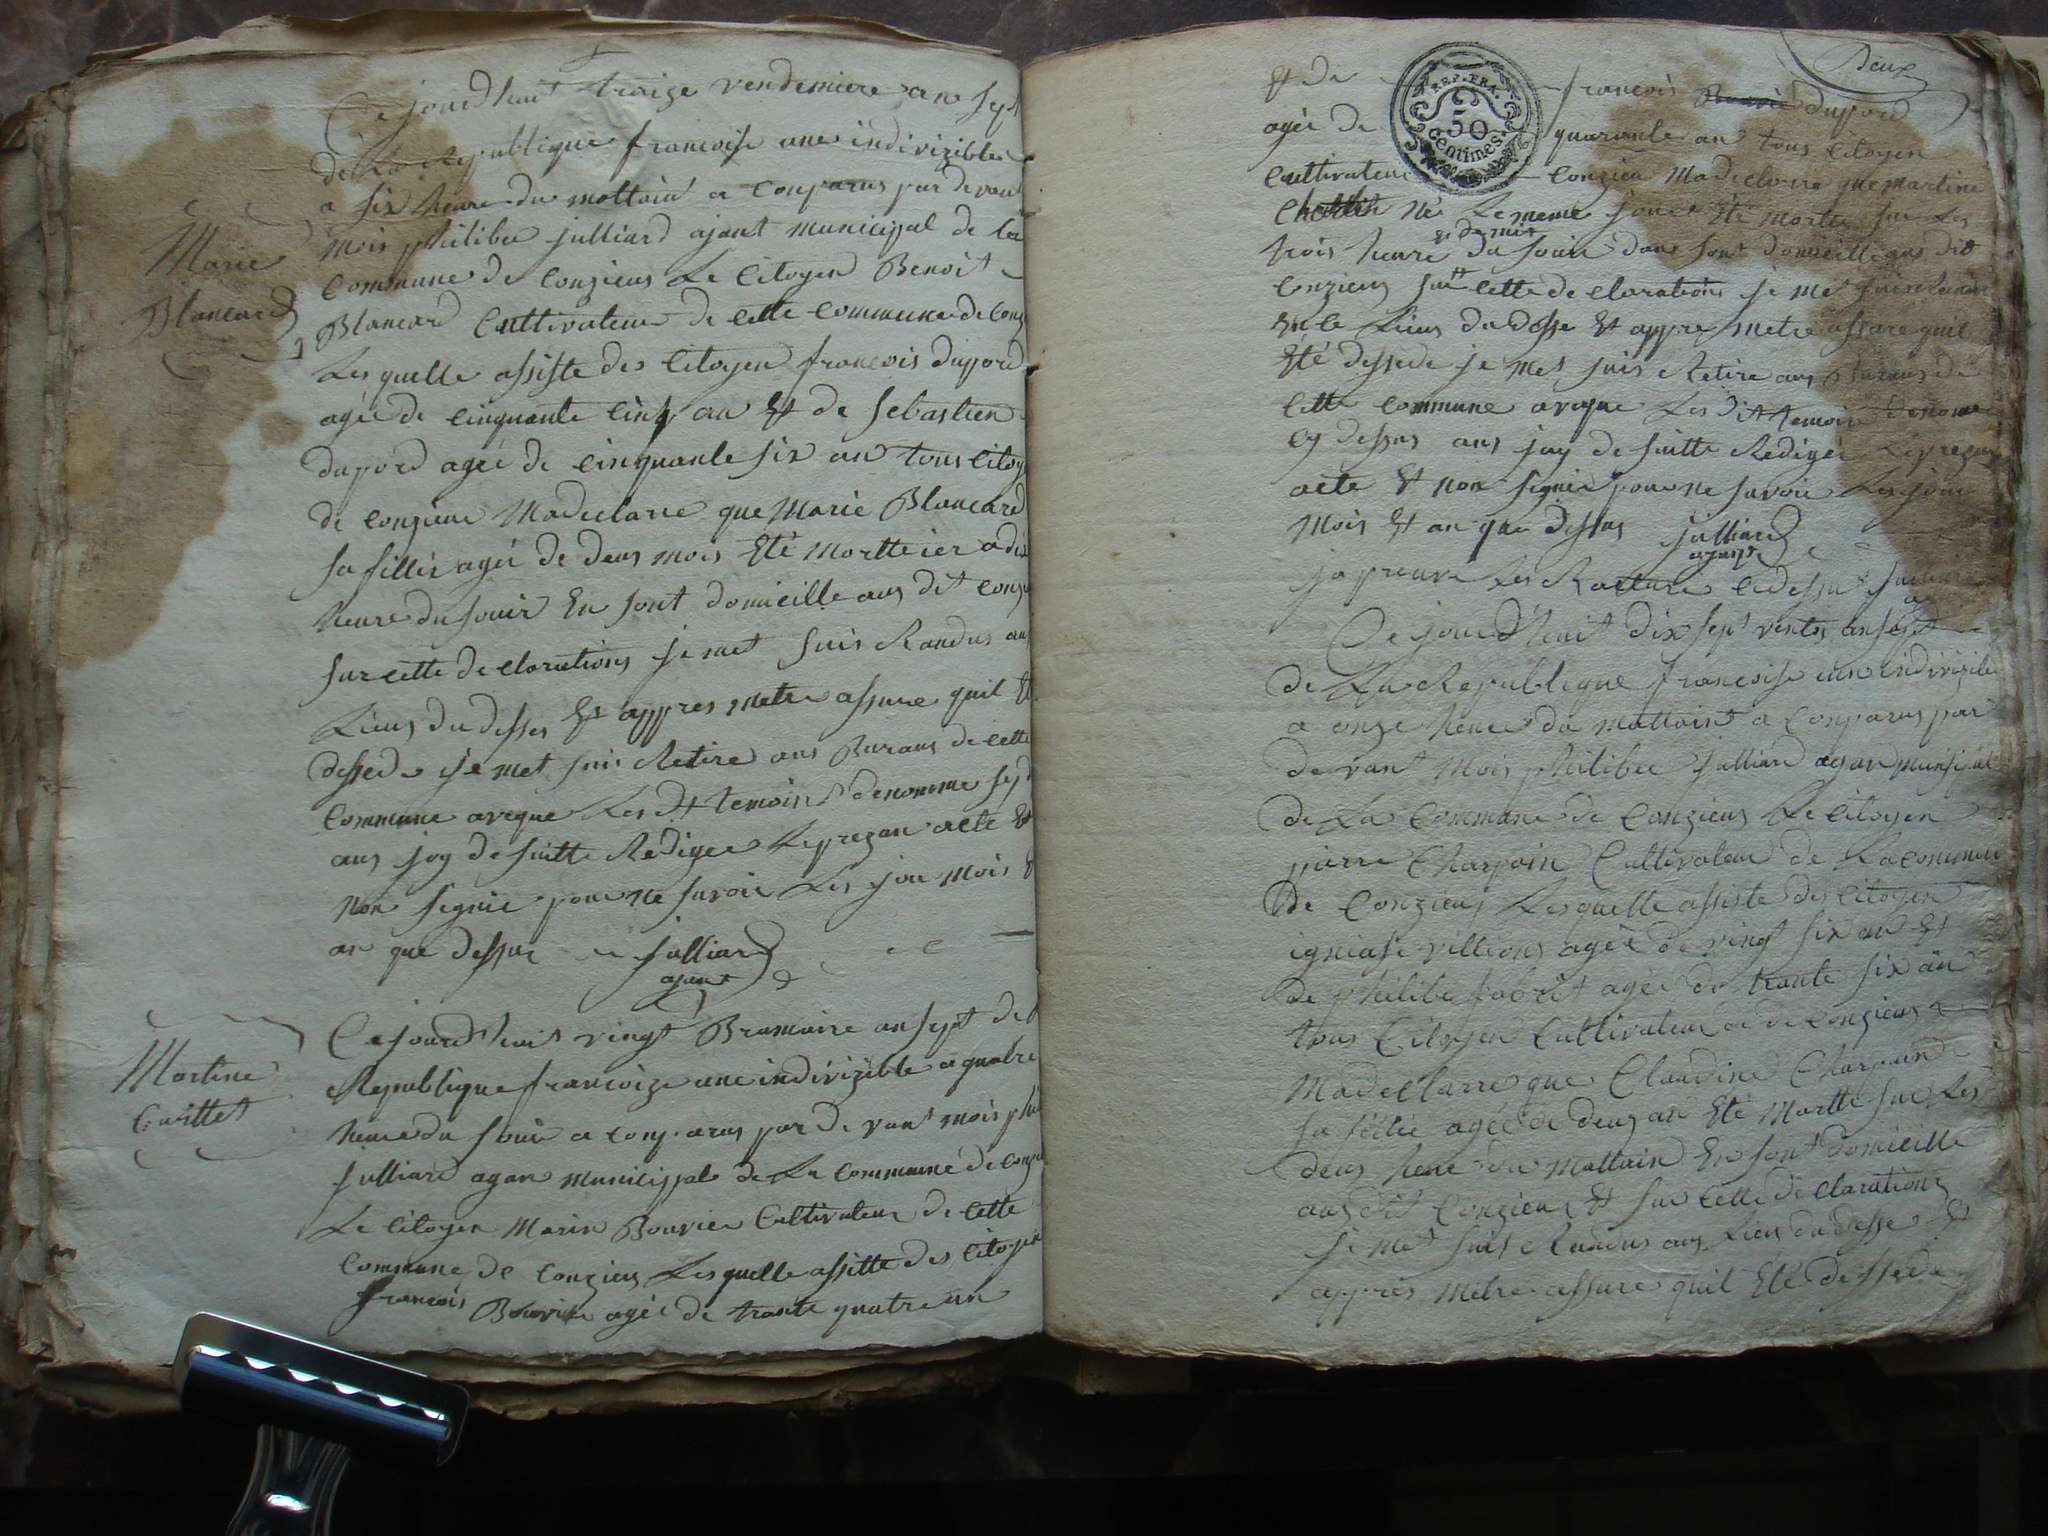 Ce jourdhuit traize vendemiere an sept
de La Republique francoise une indivizible
a six heure du mattain a conparus par devant
Mois philiber julliard ajant municipal de la
commune de conzieus Le Citoyen Benoit
Blancard Cultivateur de cette commune de conz
Lesquelle assiste des Citoyen francois dupord
agée de cinquante cinq an Et de sebastien
dupord agée de cinquante six an tous Citoy
de conzieu Madeclare que Marie Blancard
sa fillie agée de deus mois Eté Mortte ier a dix
heure du souir En sont domicille aus dit conzi
sur cette declarations je met suis Randus au
Lieus du desses Et appres metre assure quil E
dessede je met suis Retire aus Buraus de cette
commune avque Les dt temoins denomme sy d
aus jay de suitte Rediger Le prezan acte Et
non signie pour ne savoir Les jour Mois E
an que dessus julliard
ajant
Marie
Blancard
Ce jourdhuit vingt Bramaire an sept de L
Republique francoize une indivizible a quatre
heure du souir a conparus par de vant mois phi
julliard agan municippal de La commune de conzi
Le Citoyen Marin Bouvier Cultivateur de cette
commune de conzieus Lesquelle assitte des Citoyen
francois Bouvier agée de trante quatre an
Martine
Cuittet
Deux
Et de francois Bouvie dupord
agée de quarante an tous Citoyen
Cultivateur conzieu Madeclarre que Martine
né Le meme jour Eté mortte sur Les
trois heure Et demit du souir dans sont domicille aus dit
conzieus sur cette declarations je met suis Randu
En le Lieus du desse Et appres metre assure quil
Eté dessede je met suis Retire aus Buraus de
cette commune avque Les dit temoins denome
cy dessus aus jay de suitte Rediger Le prezan
acte Et non signie pour ne savoir Les jour
Mois Et an que dessus julliard
ajant
japreuve Les Rature cidessut julliard
REP. FRA.
50
Centimes.
Ce jourdhuit dix sept ventos an sept
de La Republique francoise une indivizible
a onze heure du mattaint a conparus par
devant Mois philiber julliard agan munisipal
de La commune de conzieus Le Citoyen
pierre Charpoin Cultivateur de La commune
de conzieus Lesquelle assiste des Citoyen
igniase villions agée de vingt six an Et
de philibe fabrit agée de trante six an
tous Citoyen Cultivateur de conzieus
Madeclarre que Claudine Charpoin
sa fillie agée de deus an Eté Mortte sur Les
deus heure du Mattain En sont domicille
aus dit Conzieus Et sur cette declarations
je met suis Randus aus Lieus du desse Et
appres metre assure quil Eté dessede